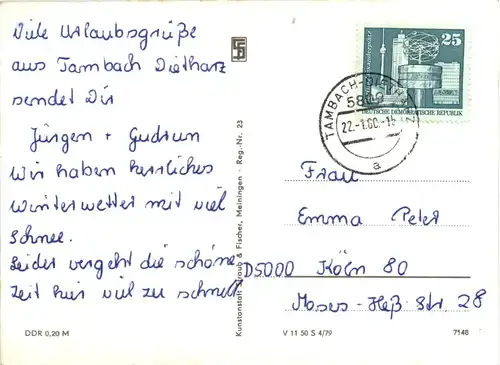 Viele Urlaubsgrüße
aus Tambach Dietharz
sendet Dir
Jürgen + Gudrun
Wir haben herrliches
Winterwetter mit viel
Schnee.
Leider vergeht die schöne
Zeit hier viel zu schnell.
DDR 0,20 M
Kunstanstalt Straub & Fischer, Meiningen · Reg.-Nr. 23
25
DEUTSCHE DEMOKRATISCHE REPUBLIK
TAMBACH-DIETHARZ
22.-1.80.-15
a
Frau
Emma Peter
D5000 Köln 80
Moses-Heß-Str. 28
V 11 50 S 4/79
7148